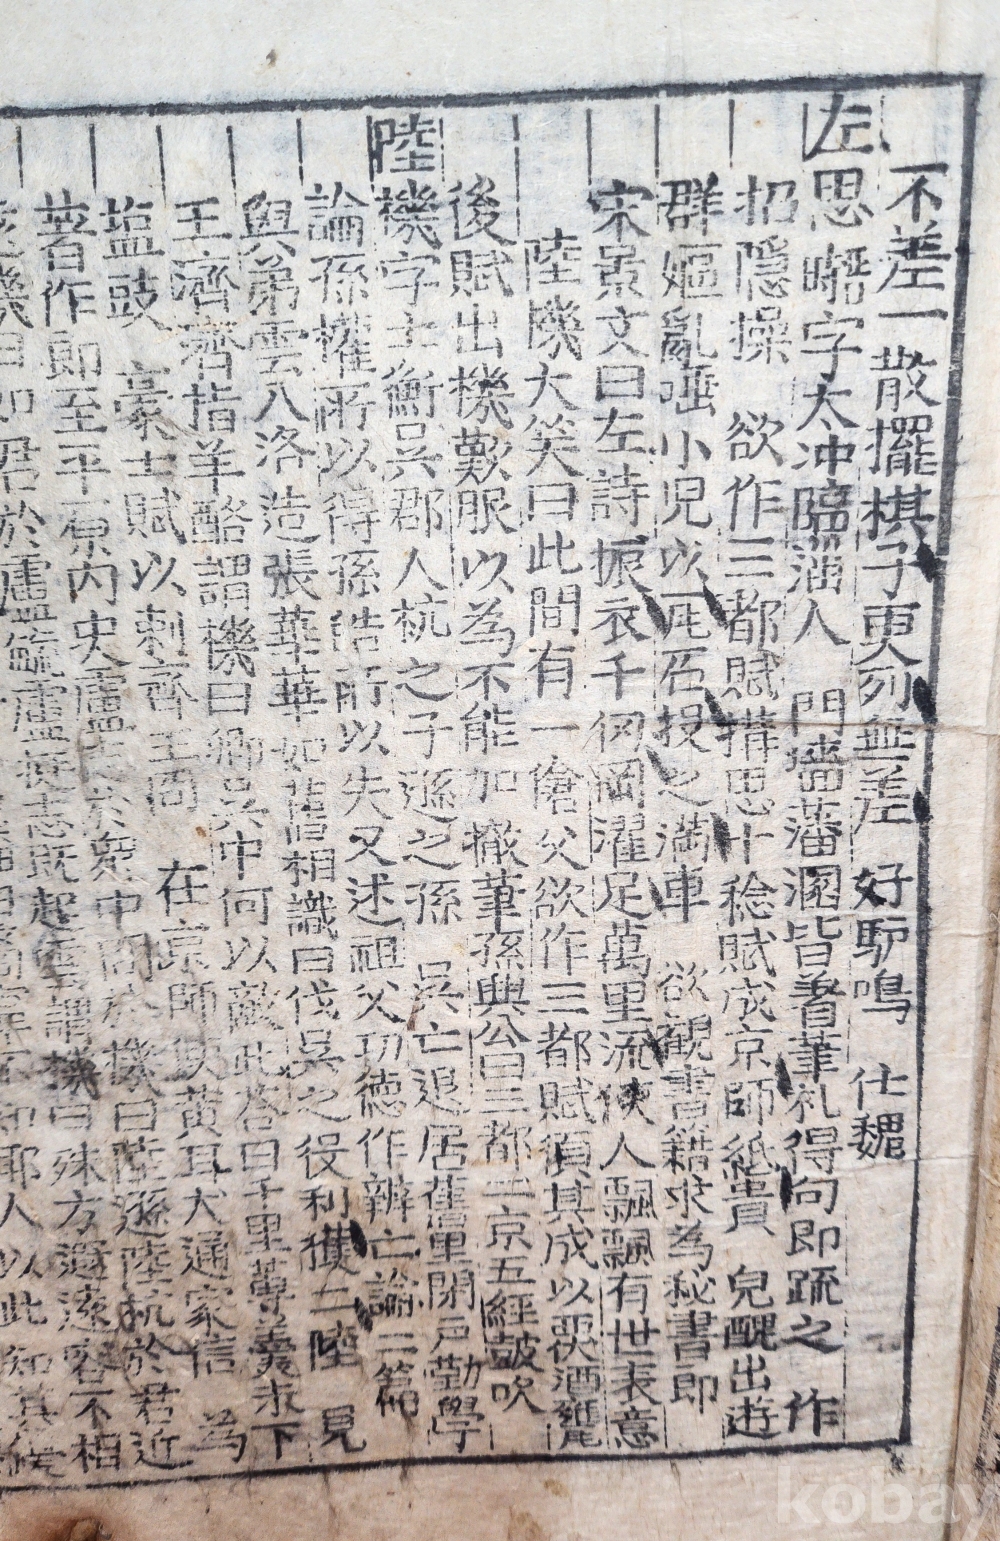 不差一 散擺棋子更列無差 好馿鳴 仕魏
左思 字太冲臨淄人 門墻藩溷皆著筆札得句即䟽之 作
招隱操 欲作三都賦搆思十稔賦成京師紙貴 皃醜出遊
群嫗亂唾小児以瓦石投之満車 欲観書籍求為秘書即
宋景文曰左詩振衣千仞岡濯足萬里流使人飄飄有世表意
陸機大笑曰此間有一傖父欲作三都賦須其成以覆酒甕
後賦出機歎服以為不能加 撤筆孫興公曰三都二京五經皷吹
陸機字士衡吳郡人杭之子遜之孫 吳亡退居舊里閉戸勤學
論孫權所以得孫皓所以失又述祖父功德作辨亡論二篇
與弟雲入洛造張華華如舊相識曰伐吳之役利獲二陸 見
王濟濟指羊酪謂機曰卿吳中何以敵此答曰千里蓴羹未下
塩豉 豪士賦以刺齊王冏 在京師 黄耳犬通家信 為
著作即至平原内史盧 於衆中問於機曰陸遜陸杭於君近
機曰如君於盧毓盧珽志既起雲謂機曰殊方遐遠容不相
耶人以此知其